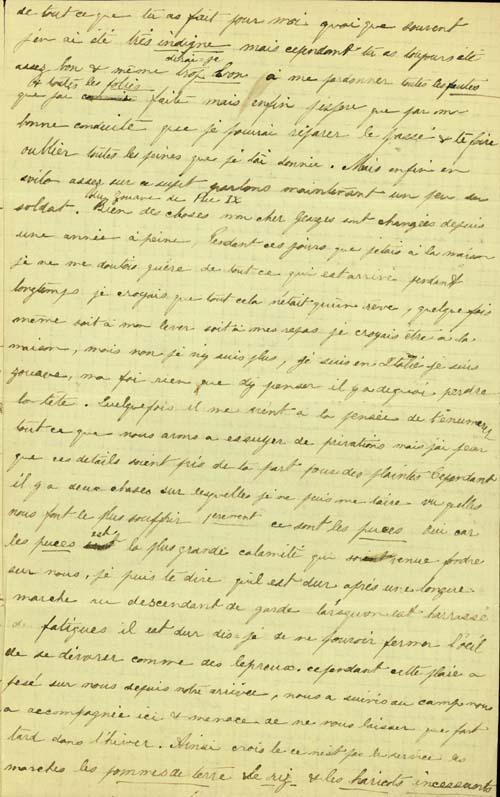 de tout ce que tu as fait pour moi quoique souvent
j'en ai été très indigne mais cependant tu as toujours été
dirai-je
assez bon & même trop bon à me pardonner toutes les fautes
& toutes les folies
que j'ai faite mais enfin j'espère que par ma
bonne conduite que je pourai réparer le passé & te faire
oublier toutes les peines que je t'ai donnée. Mais enfin en
voila assez sur ce sujet parlons maintenant un peu du
du Zouave de Pie IX
soldat. Bien des choses mon cher sont changées depuis
une année à peine, Pendant ces jours que j'etais à la maison
je ne me doutais guère de tout ce qui est arrivé pendant
longtemps je croyais que tout cela n'était qu'un reve, quelque fois
même soit à mon lever soit à mes repas je croyais être à la
maison, mais non je n'y suis plus, je suis en Italie je suis
zouave, ma foi rien que d'y penser il y a de quoi perdre
la tête. Quelquefois il me vient à la pensée de t'énumerer
tout ce que nous avons a essuyer de privations mais j'ai peur
que ces details soient pris de ta part pour des plaintes Cependant
il y a deux choses sur lesquelles je ne puis me taire vu qu'elles
nous font le plus souffrir ce sont les puces Oui car
les puces est la plus grande calamité qui soit venue fondre
sur nous, je puis te dire qu'il est dur après une longue
marche au descendant de garde lorsqu'on est harrassé
de fatigues il est dur dis-je de ne pouvoir fermer l'oeil
de se dévorer comme des lepreux. cependant cette plaie a
pesé sur nous depuis notre arrivée, nous a suivis au camp nous
a accompagnée ici & menace de ne nous laisser que fort
tard dans l'hiver. Ainsi crois le ce n'est pas le service les
marches les pommes de terre le riz & les haricots incessants